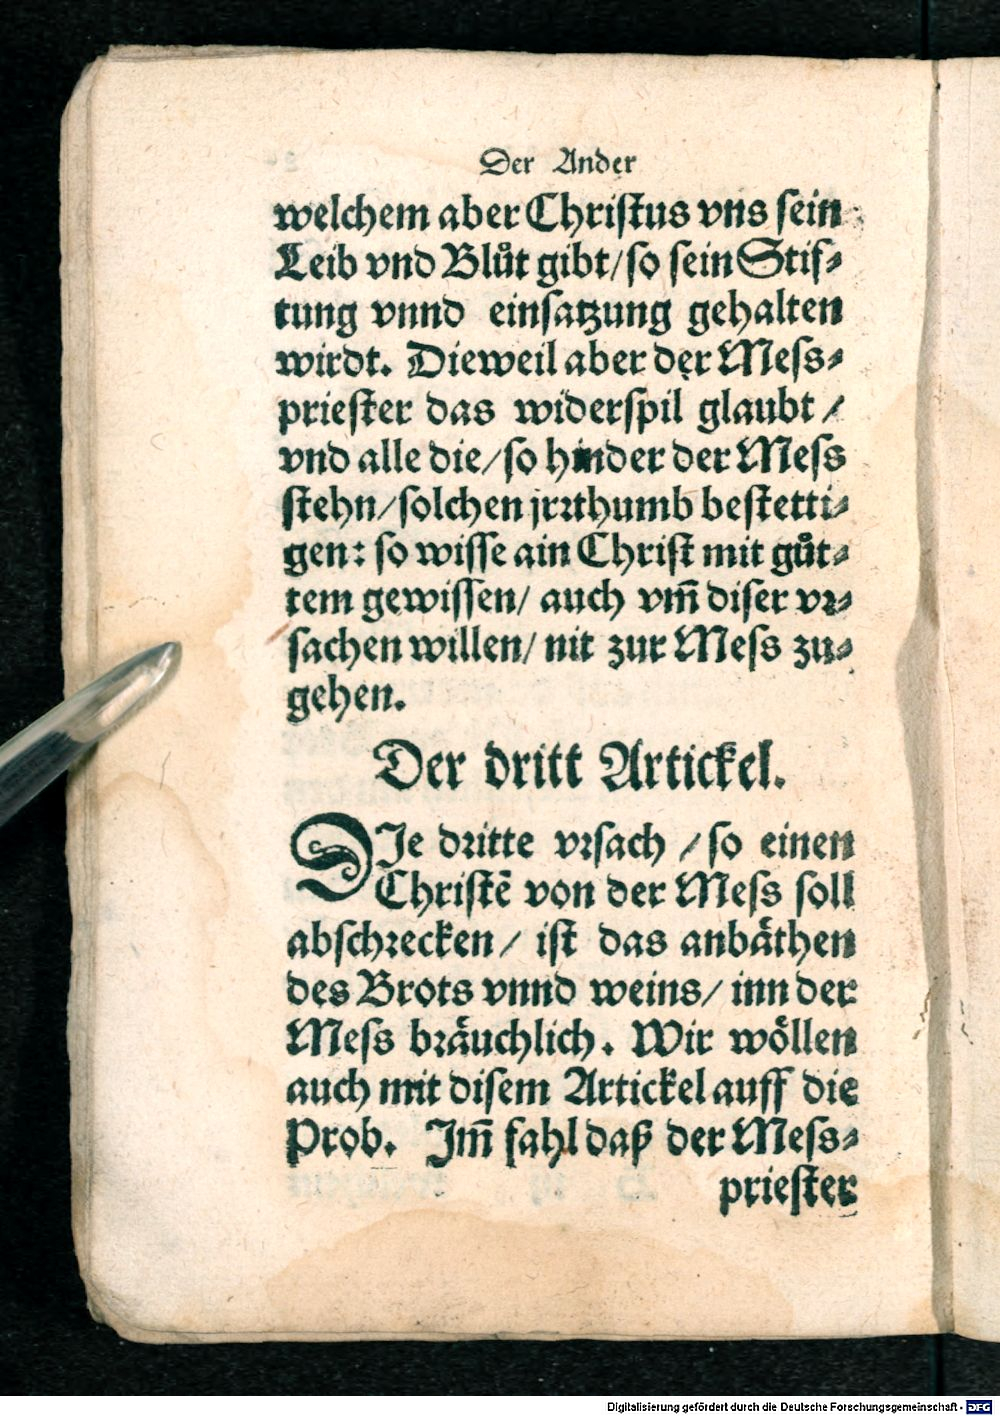 Der Ander
welchem aber Christus vns sein
Leib vnd Blůt gibt/so sein Stif-
tung vnnd einsatzung gehalten
wirdt. Dieweil aber der Mess-
priester das widerspil glaubt/
vnd alle die/so hinder der Mess
stehn/solchen jrrthumb bestetti-
gen: so wisse ain Christ mit gůt-
tem gewissen/ auch vm̃ diser vr-
sachen willen/ nit zur Mess zu-
gehen.
Der dritt Artickel.
DIe dritte vrsach/so einen
Christẽ von der Mess soll
abschrecken/ ist das anbäthen
des Brots vnnd weins/ inn der
Mess bräuchlich. Wir wöllen
auch mit disem Artickel auff die
Prob. Jm̃ fahl daß der Mess-
priester
Digitalisierung gefördert durch die Deutsche Forschungsgemeinschaft - DFG